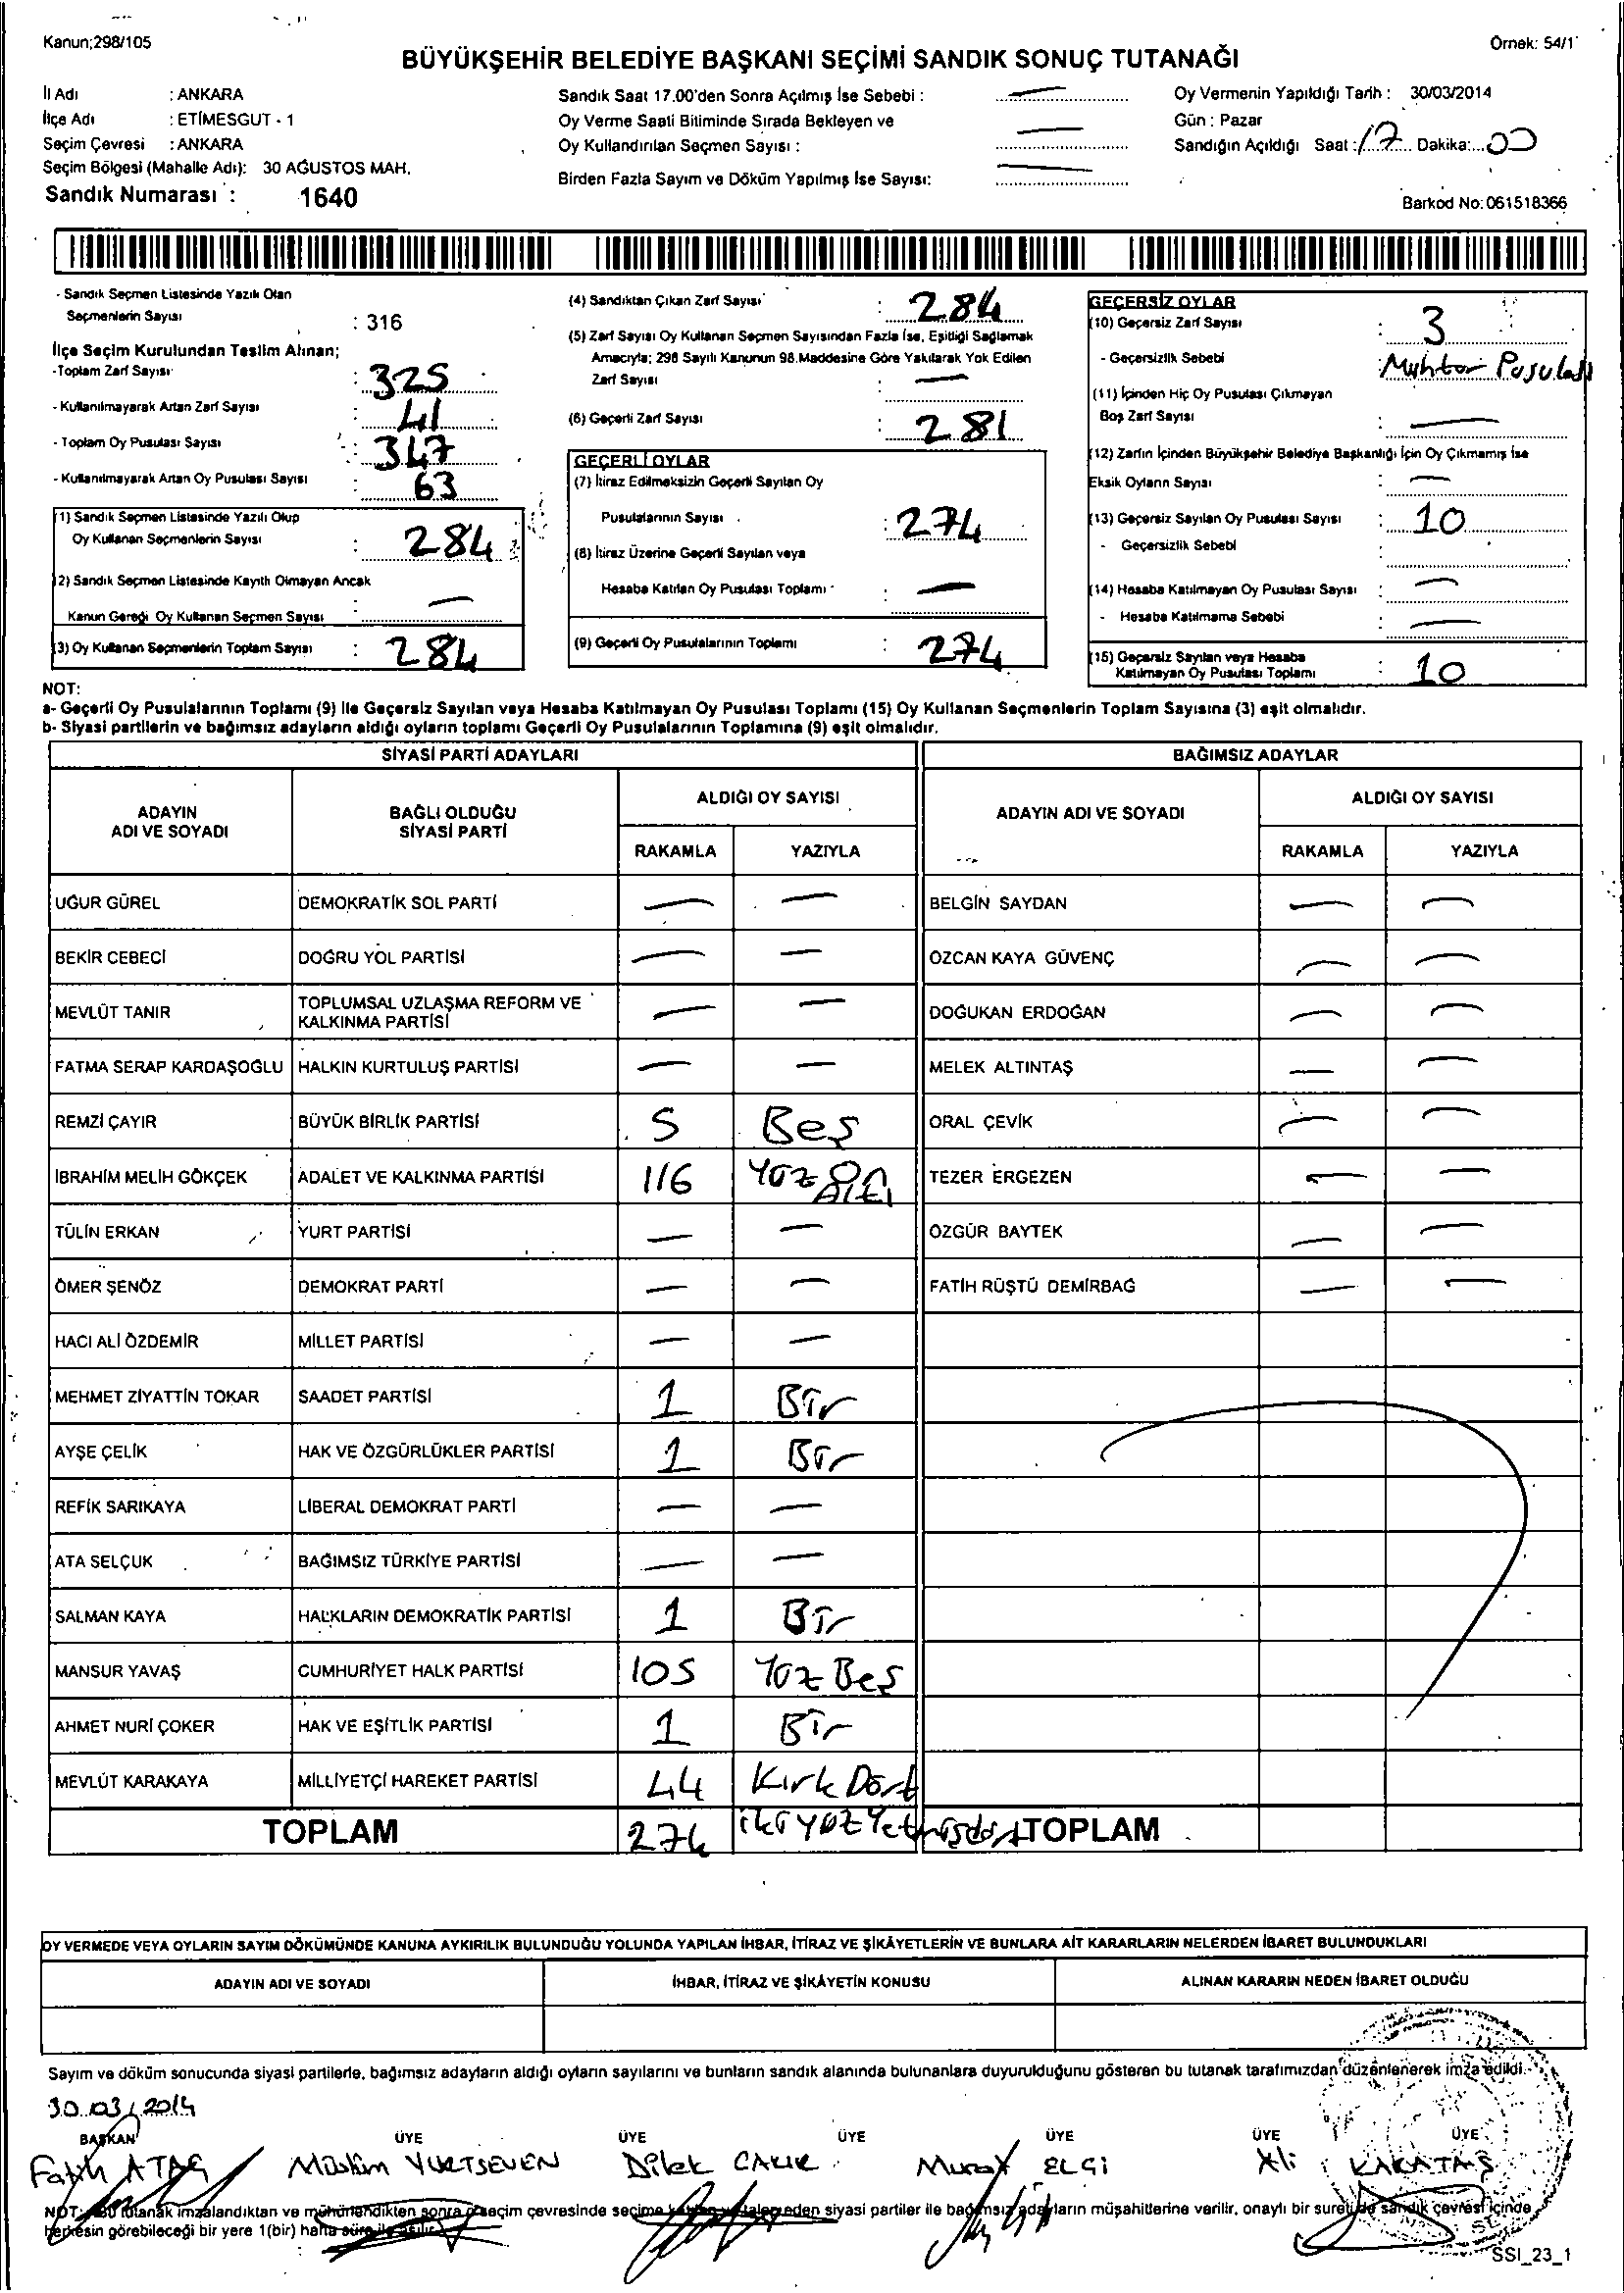 Kanun;298/105
Örnek: 54/1
BÜYÜKŞEHİR BELEDİYE BAŞKANI SEÇİMİ SANDIK SONUÇ TUTANAĞI
İl Adı : ANKARA
İlçe Adı : ETİMESGUT - 1
Seçim Çevresi : ANKARA
Seçim Bölgesi (Mahalle Adı): 30 AĞUSTOS MAH.
Sandık Numarası : 1640
Sandık Saat 17.00'den Sonra Açılmış İse Sebebi : —
Oy Verme Saati Bitiminde Sırada Bekleyen ve
Oy Kullandırılan Seçmen Sayısı : —
Birden Fazla Sayım ve Döküm Yapılmış İse Sayısı: —
Oy Vermenin Yapıldığı Tarih : 30/03/2014
Gün : Pazar
Sandığın Açıldığı Saat : 17 Dakika: 00
Barkod No: 061518366
- Sandık Seçmen Listesinde Yazılı Olan
Seçmenlerin Sayısı : 316
İlçe Seçim Kurulundan Teslim Alınan;
-Toplam Zarf Sayısı : 325
- Kullanılmayarak Artan Zarf Sayısı : 41
- Toplam Oy Pusulası Sayısı : 347
- Kullanılmayarak Artan Oy Pusulası Sayısı : 63
(1) Sandık Seçmen Listesinde Yazılı Olup
Oy Kullanan Seçmenlerin Sayısı : 284
(2) Sandık Seçmen Listesinde Kayıtlı Olmayan Ancak
Kanun Gereği Oy Kullanan Seçmen Sayısı : —
(3) Oy Kullanan Seçmenlerin Toplam Sayısı : 284
(4) Sandıktan Çıkan Zarf Sayısı : 284
(5) Zarf Sayısı Oy Kullanan Seçmen Sayısından Fazla İse, Eşitliği Sağlamak
Amacıyla; 298 Sayılı Kanunun 98.Maddesine Göre Yakılarak Yok Edilen
Zarf Sayısı : —
(6) Geçerli Zarf Sayısı : 281
GEÇERLİ OYLAR
(7) İtiraz Edilmeksizin Geçerli Sayılan Oy
Pusulalarının Sayısı : 274
(8) İtiraz Üzerine Geçerli Sayılan veya
Hesaba Katılan Oy Pusulası Toplamı : —
(9) Geçerli Oy Pusulalarının Toplamı : 274
GEÇERSİZ OYLAR
(10) Geçersiz Zarf Sayısı : 3
- Geçersizlik Sebebi : Muhtar Pusulası
(11) İçinden Hiç Oy Pusulası Çıkmayan
Boş Zarf Sayısı : —
(12) Zarfın İçinden Büyükşehir Belediye Başkanlığı İçin Oy Çıkmamış İse
Eksik Oyların Sayısı : —
(13) Geçersiz Sayılan Oy Pusulası Sayısı : 10
- Geçersizlik Sebebi :
(14) Hesaba Katılmayan Oy Pusulası Sayısı : —
- Hesaba Katılmama Sebebi : —
(15) Geçersiz Sayılan veya Hesaba
Katılmayan Oy Pusulası Toplamı : 10
NOT:
a- Geçerli Oy Pusulalarının Toplamı (9) ile Geçersiz Sayılan veya Hesaba Katılmayan Oy Pusulası Toplamı (15) Oy Kullanan Seçmenlerin Toplam Sayısına (3) eşit olmalıdır.
b- Siyasi partilerin ve bağımsız adayların aldığı oyların toplamı Geçerli Oy Pusulalarının Toplamına (9) eşit olmalıdır.
SİYASİ PARTİ ADAYLARI
BAĞIMSIZ ADAYLAR
ADAYIN ADI VE SOYADI
BAĞLI OLDUĞU SİYASİ PARTİ
ALDIĞI OY SAYISI
RAKAMLA YAZIYLA
ADAYIN ADI VE SOYADI
ALDIĞI OY SAYISI
RAKAMLA YAZIYLA
UĞUR GÜREL DEMOKRATİK SOL PARTİ — — BELGİN SAYDAN — —
BEKİR CEBECİ DOĞRU YOL PARTİSİ — — ÖZCAN KAYA GÜVENÇ — —
MEVLÜT TANIR TOPLUMSAL UZLAŞMA REFORM VE KALKINMA PARTİSİ — — DOĞUKAN ERDOĞAN — —
FATMA SERAP KARDAŞOĞLU HALKIN KURTULUŞ PARTİSİ — — MELEK ALTINTAŞ — —
REMZİ ÇAYIR BÜYÜK BİRLİK PARTİSİ 5 Beş ORAL ÇEVİK — —
İBRAHİM MELİH GÖKÇEK ADALET VE KALKINMA PARTİSİ 116 Yüz On Altı TEZER ERGEZEN — —
TÜLİN ERKAN YURT PARTİSİ — — ÖZGÜR BAYTEK — —
ÖMER ŞENÖZ DEMOKRAT PARTİ — — FATİH RÜŞTÜ DEMİRBAĞ — —
HACI ALİ ÖZDEMİR MİLLET PARTİSİ — —
MEHMET ZİYATTİN TOKAR SAADET PARTİSİ 1 Bir
AYŞE ÇELİK HAK VE ÖZGÜRLÜKLER PARTİSİ 1 Bir
REFİK SARIKAYA LİBERAL DEMOKRAT PARTİ — —
ATA SELÇUK BAĞIMSIZ TÜRKİYE PARTİSİ — —
SALMAN KAYA HALKLARIN DEMOKRATİK PARTİSİ 1 Bir
MANSUR YAVAŞ CUMHURİYET HALK PARTİSİ 105 Yüz Beş
AHMET NURİ ÇOKER HAK VE EŞİTLİK PARTİSİ 1 Bir
MEVLÜT KARAKAYA MİLLİYETÇİ HAREKET PARTİSİ 44 Kırk Dört
TOPLAM 274 iki yüz Yetmişdört TOPLAM
OY VERMEDE VEYA OYLARIN SAYIM DÖKÜMÜNDE KANUNA AYKIRILIK BULUNDUĞU YOLUNDA YAPILAN İHBAR, İTİRAZ VE ŞİKÂYETLERİN VE BUNLARA AİT KARARLARIN NELERDEN İBARET BULUNDUKLARI
ADAYIN ADI VE SOYADI İHBAR, İTİRAZ VE ŞİKÂYETİN KONUSU ALINAN KARARIN NEDEN İBARET OLDUĞU
Sayım ve döküm sonucunda siyasi partilerle, bağımsız adayların aldığı oyların sayılarını ve bunların sandık alanında bulunanlara duyurulduğunu gösteren bu tutanak tarafımızdan düzenlenerek imza edildi.
30.03/2014
BAŞKAN ÜYE ÜYE ÜYE ÜYE ÜYE ÜYE
Fatih ATAŞ Müslüm YURTSEVEN Dilek CAKIR Murat ELGİ Ali KARATAŞ
NOT: Bu tutanak imzalandıktan ve mühürlendikten sonra o seçim çevresinde seçime katılan ve talep eden siyasi partiler ile bağımsız adayların müşahitlerine verilir, onaylı bir sureti de sandık çevresi içinde
herkesin görebileceği bir yere 1(bir) hafta süre ile asılır.
SSI_23_1